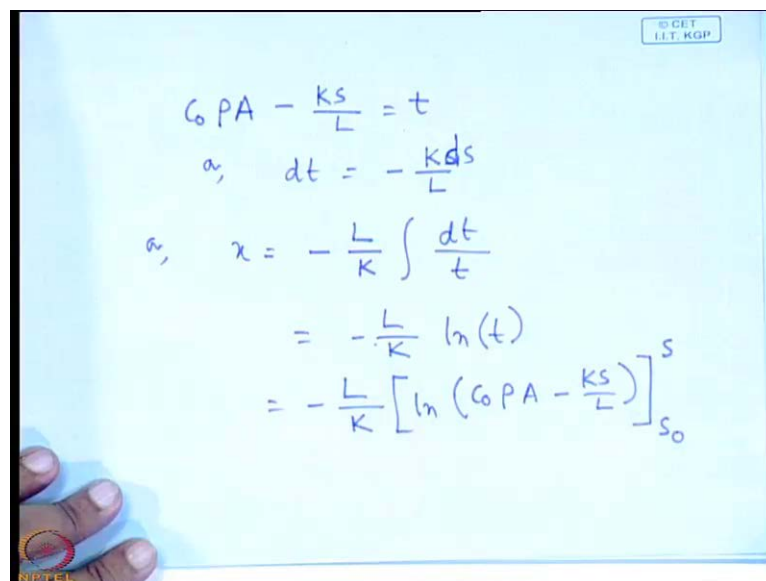 © CET
I.I.T. KGP
C₀ PA - KS/L = t
a, dt = - Kds/L
a, x = - L/K ∫ dt/t
= - L/K ln(t)
= - L/K [ln (C₀ PA - KS/L)]ˢ_S₀
NPTEL